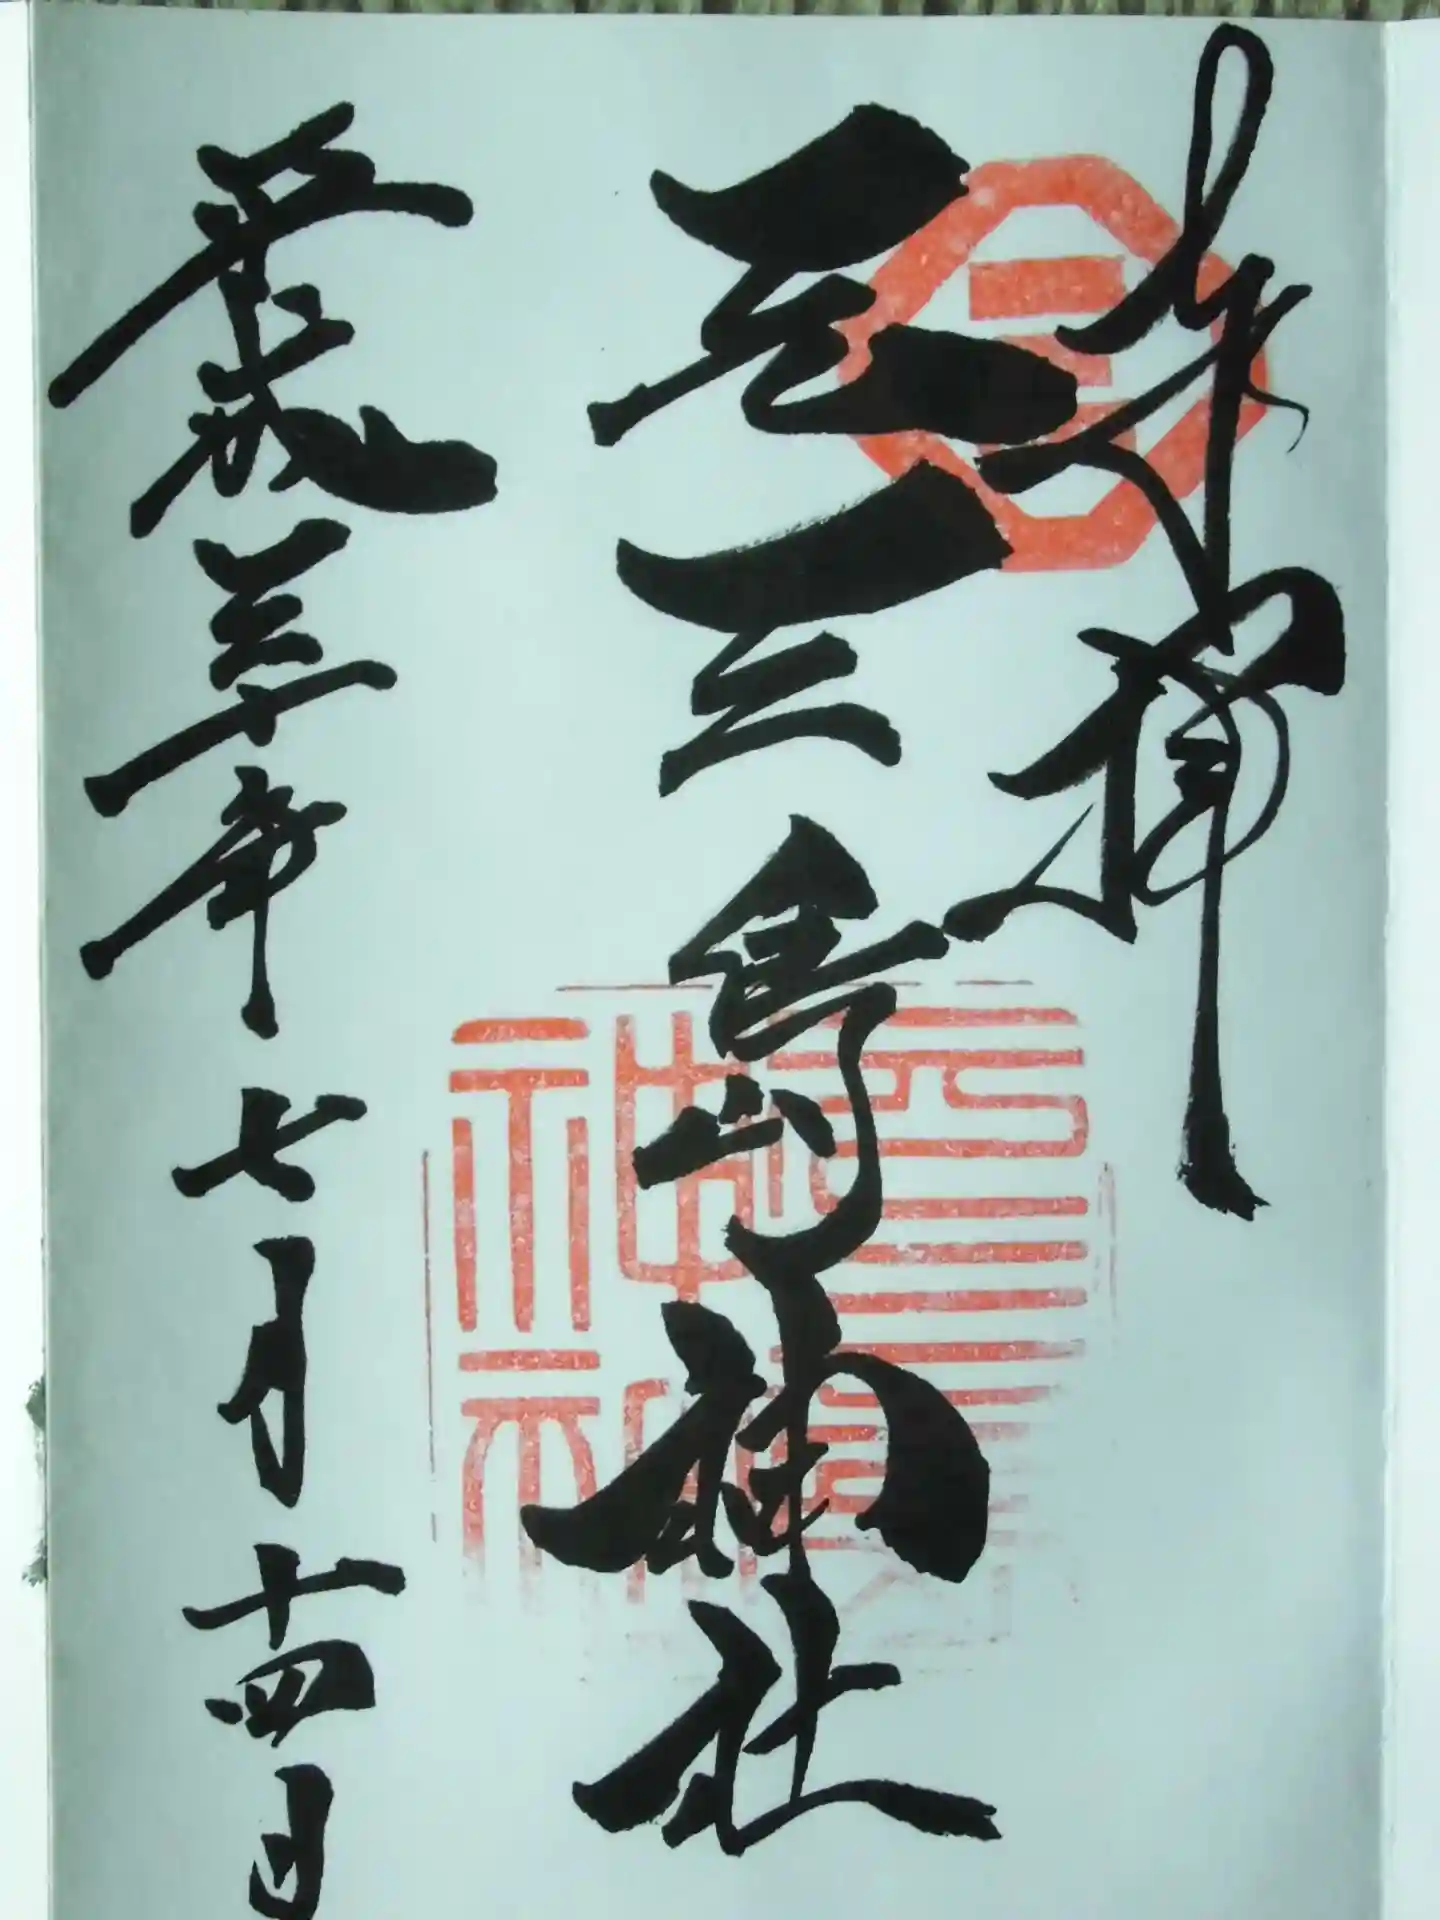 奉拝
元三島神社
平成三十年七月十四日
三